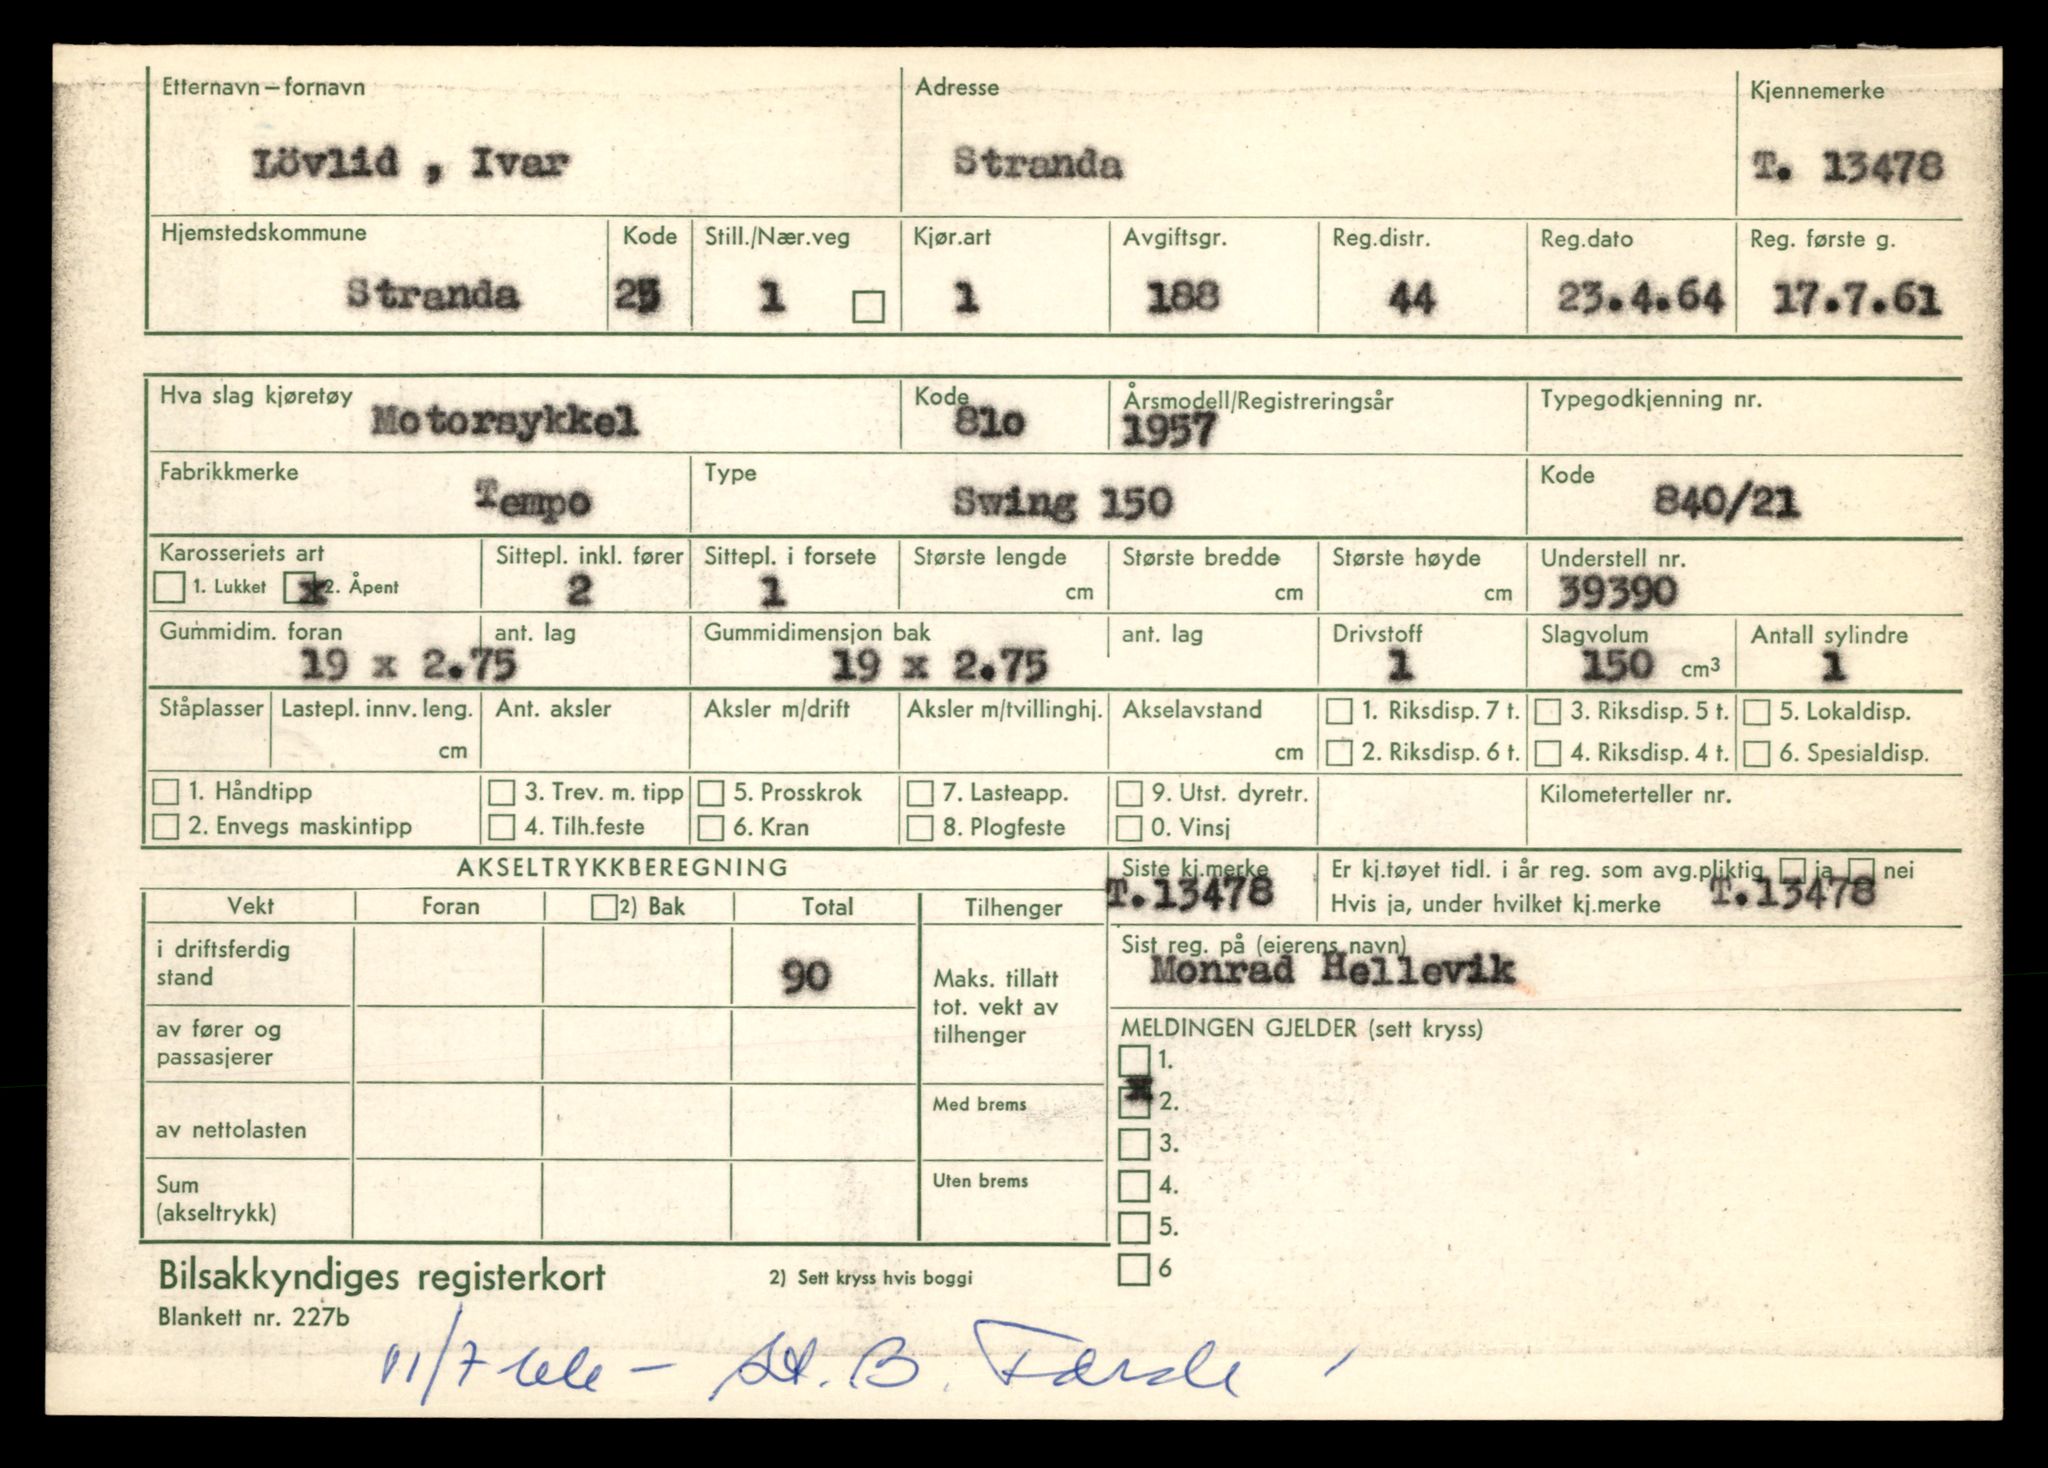 Etternavn – fornavn Adresse Kjennemerke
Lövlid , Ivar Stranda T. 13478
Hjemstedskommune Kode Still./Nær.veg Kjør.art Avgiftsgr. Reg.distr. Reg.dato Reg. første g.
Stranda 25 1 1 188 44 23.4.64 17.7.61
Hva slag kjøretøy Kode Årsmodell/Registreringsår Typegodkjenning nr.
Motorsykkel 810 1957
Fabrikkmerke Type Kode
Tempo Swing 150 840/21
Karosseriets art Sittepl. inkl. fører Sittepl. i forsete Største lengde Største bredde Største høyde Understell nr.
1. Lukket x 2. Åpent 2 1 cm cm cm 39390
Gummidim. foran ant. lag Gummidimensjon bak ant. lag Drivstoff Slagvolum Antall sylindre
19 x 2.75 19 x 2.75 1 150 cm3 1
Ståplasser Lastepl. innv. leng. Ant. aksler Aksler m/drift Aksler m/tvillinghj. Akselavstand 1. Riksdisp. 7 t. 3. Riksdisp. 5 t. 5. Lokaldisp.
cm cm 2. Riksdisp. 6 t. 4. Riksdisp. 4 t. 6. Spesialdisp.
1. Håndtipp 3. Trev. m. tipp 5. Prosskrok 7. Lasteapp. 9. Utst. dyretr. Kilometerteller nr.
2. Envegs maskintipp 4. Tilh.feste 6. Kran 8. Plogfeste 0. Vinsj
AKSELTRYKKBEREGNING Siste kj.merke Er kj.tøyet tidl. i år reg. som avg.pliktig ja nei
T.13478 Hvis ja, under hvilket kj.merke T.13478
Vekt Foran 2) Bak Total Tilhenger
i driftsferdig stand 90
Sist reg. på (eierens navn)
Monrad Hellevik
Maks. tillatt tot. vekt av tilhenger
av fører og passasjerer
MELDINGEN GJELDER (sett kryss)
1.
x 2.
av nettolasten Med brems
3.
Sum (akseltrykk) Uten brems
4.
5.
6
Bilsakkyndiges registerkort 2) Sett kryss hvis boggi
Blankett nr. 227b
11/7 66 – St. B. Førde